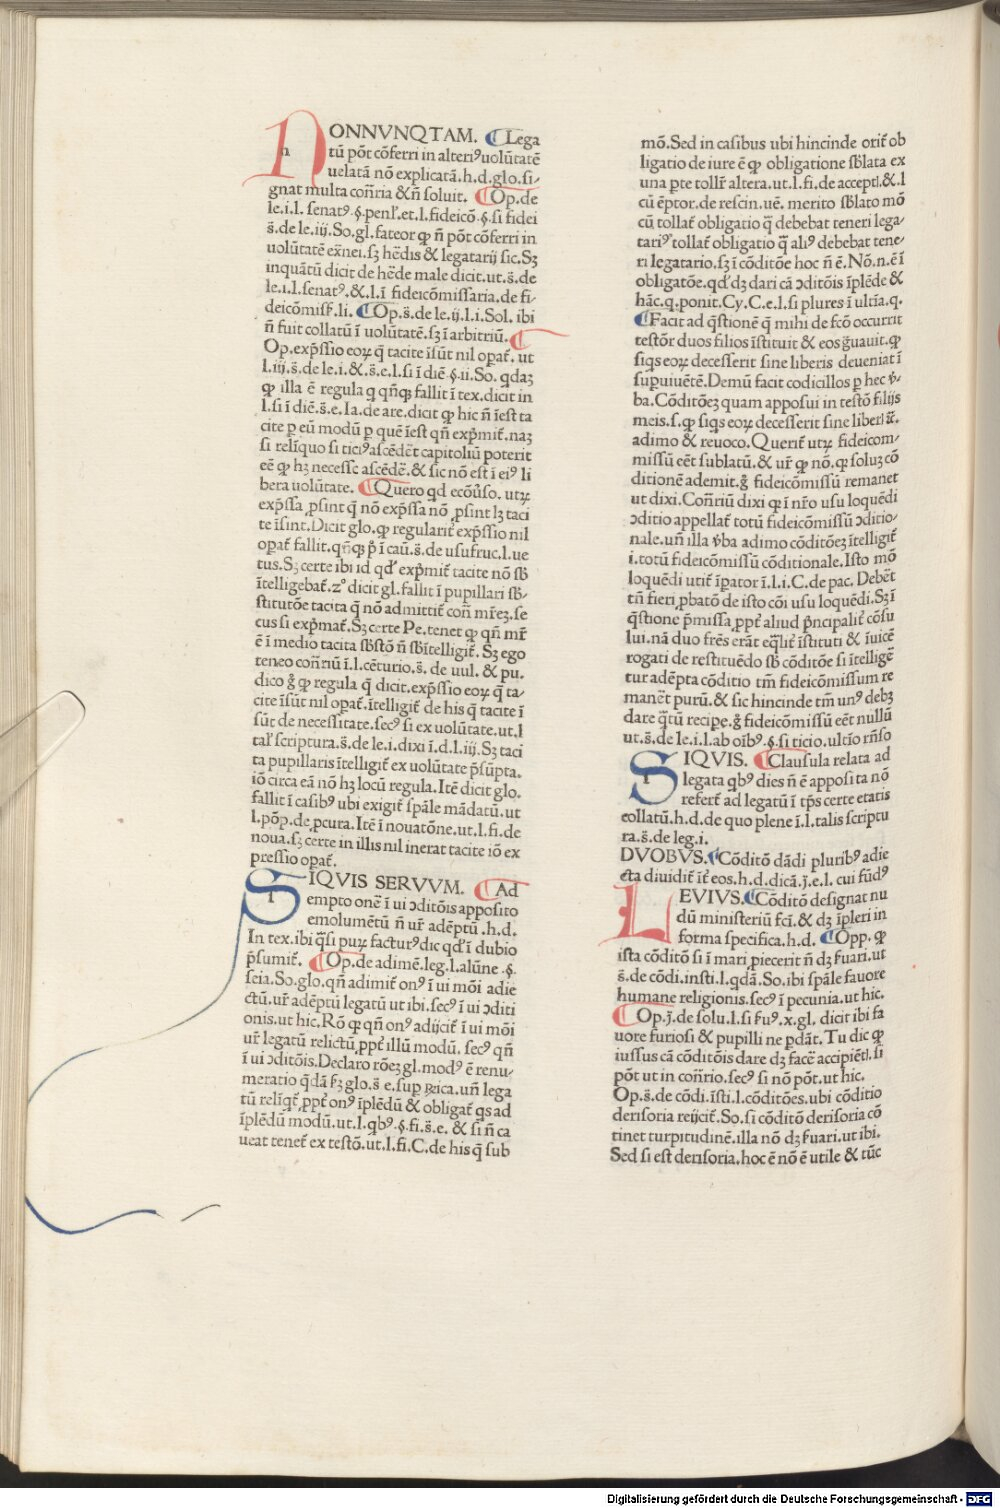 NONNVNQTAM. Lega
tū pōt cōferri in alteriꝰ uolūtatē
uelatā nō explicatā.h.d.glo.si-
gnat multa cōñria & ñ soluit. Op.de
le.i.l. senatꝰ.§.penl̕.et.l.fideicō.§.si fidei
s̄.de le.iij.So.gl.fateor ꝙ ñ pōt cōferri in
uolūtatē exñei.sꝫ hēdis & legatarij sic.Sꝫ
inquātū dicit de hēde male dicit.ut.s̄.de
le.i.l.senatꝰ.&.l.ī fideicōmissaria.de fi-
deicōmiss̄.li. Op.s̄.de le.ij.l.i.Sol. ibi
ñ fuit collatū ī uolūtatē.sꝫ ī arbitriū.
Op.exp̄ssio eoꝝ q̄ tacite īsūt nil opat̄. ut
l.iij.s̄.de le.i.&.s̄.e.l.si ī diē.§.ii.So. qdaꝫ
ꝙ illa ē regula q qñqꝫ fallit ī tex.dicit in
l.si ī diē.s̄.e. Ia.de are.dicit ꝙ hic ñ īest ta
cite p eū modū p quē īest qñ exp̄mit̄.naꝫ
si reliquo si ticiꝰ ascēdēt capitoliū poterit
eē ꝙ hꝫ necesse ascēdē.& sic nō est ī eiꝰ li
bera uolūtate. Quero qd ecōu̇so. utꝝ
exp̄ssa ꝓsint q̄ nō exp̄ssa nō ꝓsint lꝫ taci
te īsint.Dicit glo.ꝙ regularit̄ exp̄ssio nil
opat̄ fallit.qñqꝫ p̄ ī caū.s̄.de usufruc.l.ue
tus.Sꝫ certe ibi id qd̕ exp̄mit̄ tacite nō sb̄
ītelligebat̄.2̊ dicit gl.fallit ī pupillari sb̄-
stitutōe tacita q̄ nō admittit̄ coñ mr̄eꝫ.se
cus si exp̄mat̄.Sꝫ certe Pe.tenet ꝙ qñ mr̄
ē ī medio tacita sbstō ñ sbītelligit̄. Sꝫ ego
teneo coñriū ī.l.cēturio.s̄. de uul. & pu.
dico g̊ ꝙ regula q̄ dicit.exp̄ssio eoꝝ q̄ ta-
cite īsūt nil opat̄.ītelligit̄ de his q̄ tacite ī
sūt de necessitate.secꝰ si ex uolūtate.ut.l
tal̕ scriptura.s̄.de le.i.dixi ī.d.l.iij.Sꝫ taci
ta pupillaris ītelligit̄ ex uolūtate p̄sūpta.
iō circa eā nō hꝫ locū regula.Itē dicit glo.
fallit ī casibꝰ ubi exigit̄ sp̄ale mādatū.ut
l.pōp.de ꝓcura.Itē ī nouatōne.ut.l.fi.de
noua.sꝫ certe in illis nil inerat tacite iō ex
pressio opat̄.
SIQVIS SERVVM. Ad
empto onē ī ui ↄditōis apposito
emolumētū ñ ur̄ adēptū .h.d.
In tex.ibi q̄si puꝝ facturꝰ dic qd̕ ī dubio
p̄sumit̄. Op.de adimē.leg.l.alūne .§.
seia.So.glo.qñ adimit̄ onꝰ ī ui mōi adie
ctū.ur̄ adēptū legatū ut ibi.secꝰ ī ui ↄditi
onis.ut hic.Rō ꝙ qñ onꝰ adijcit̄ ī ui mōi
ur̄ legatū relictū ꝓpt̄ illū modū. secꝰ qñ
ī ui ↄditōis.Declaro rōeꝫ gl.modꝰ ē renu-
meratio q̄dā s̄ꝫ glo.s̄ e.sup Rica.uñ lega
tū reliq̄t̄ ꝓpt̄ onꝰ īplēdū & obligat̄ qs ad
īplēdū modū.ut.l.qbꝰ.§.fi.s̄.e. & si ñ ca
ueat tenet̄ ex testō.ut.l.fi.C.de his q̄ sub
mō.Sed in casibus ubi hincinde orit̄ ob
ligatio de iure ē ꝙ obligatione sb̄lata ex
una pte tollr̄ altera.ut.l.fi.de acceptl.&.l
cū ēptor.de rescin.uē. merito sb̄lato mō
cū tollat̄ obligatio q̄ debebat teneri lega-
tariꝰ tollat̄ obligatio q̄ aliꝰ debebat tene-
ri legatario.sꝫ ī cōditōe hoc ñ ē.Nō.n.ē ī
obligatōe.qd̕ dꝫ dari cā ↄditōis īplēde &
hāc.q.ponit.Cy.C.e.l.si plures ī ultīa.q.
Facit ad q̄stionē q̄ mihi de fcō occurrit
testōr duos filios īstituit & eos g̊auit.ꝙ
siqs eoꝝ decesserit sine liberis deueniat ī
supuiuētē.Demū facit codicillos p hec v̄-
ba.Cōditōeꝫ quam apposui in testō filijs
meis.s.ꝙ siqs eoꝝ decesserit sine liberl ꝛ̄.
adimo & reuoco.Querit̄ utꝝ fideicom-
missū eēt sublatū.& ur̄ ꝙ nō.ꝙ soluꝫ cō
ditionē ademit.g̊ fideicōmissū remanet
ut dixi.Coñriū dixi ꝙ ī nr̄o usu loquēdi
ↄditio appellat̄ totū fideicōmissū ↄditio-
nale.uñ illa v̄ba adimo cōditōeꝫ ītelligit̄
i.totū fideicōmissū cōditionale.Isto mō
loquēdi utit̄ īpator ī.l.i.C.de pac. Debēt
tñ fieri ꝓbatō de isto cōi usu loquēdi.Sꝫ ī
q̄stione p̄missa ꝓpt̄ aliud p̄ncipalit̄ cōsu
lui.nā duo frēs erāt eq̄lit̄ īstituti & īuicē
rogati de restituēdo sb̄ cōditōe si ītelligē
tur adēpta cōditio tm̄ fideicōmissum re
manēt purū.& sic hincinde tm̄ unꝰ debꝫ
dare q̄tū recipe.g̊ fideicōmissū eēt nullū
ut.s̄.de le.i.l.ab oībꝰ.§.si ticio.ultīo rñso
SIQVIS. Clausula relata ad
legata qbꝰ dies ñ ē apposita nō
refert̄ ad legatū ī tp̄s certe etatis
collatū.h.d.de quo plene ī.l.talis scriptu
ra.s̄.de leg.i.
DVOBVS. Cōditō dādi pluribꝰ adie
cta diuidit̄ īt̄ eos.h.d.dicā.j̄.e.l. cui fūdꝰ
LEVIVS. Cōditō designat nu
dū ministeriū fcī.& dꝫ īpleri in
forma specifica.h.d. Opp. ꝙ
ista cōditō si ī mari piecerit ñ dꝫ s̄uari.ut
s̄.de cōdi.insti.l.qdā.So.ibi sp̄ale fauore
humane religionis.secꝰ ī pecunia.ut hic.
Op.j̄.de solu.l.si s̄uꝰ.x.gl. dicit ibi fa
uore furiosi & pupilli ne pdāt. Tu dic ꝙ
iussus cā cōditōis dare dꝫ facē accipiēti. si
pōt ut in coñrio.secꝰ si nō pōt.ut hic.
Op.s̄.de cōdi.īsti.l.cōditōes.ubi cōditio
derisoria reijcit̄.So.si cōditō derisoria cō
tinet turpitudinē.illa nō dꝫ s̄uari.ut ibi.
Sed si est derisoria.hoc ē nō ē utile & tūc
Digitalisierung gefördert durch die Deutsche Forschungsgemeinschaft - DFG